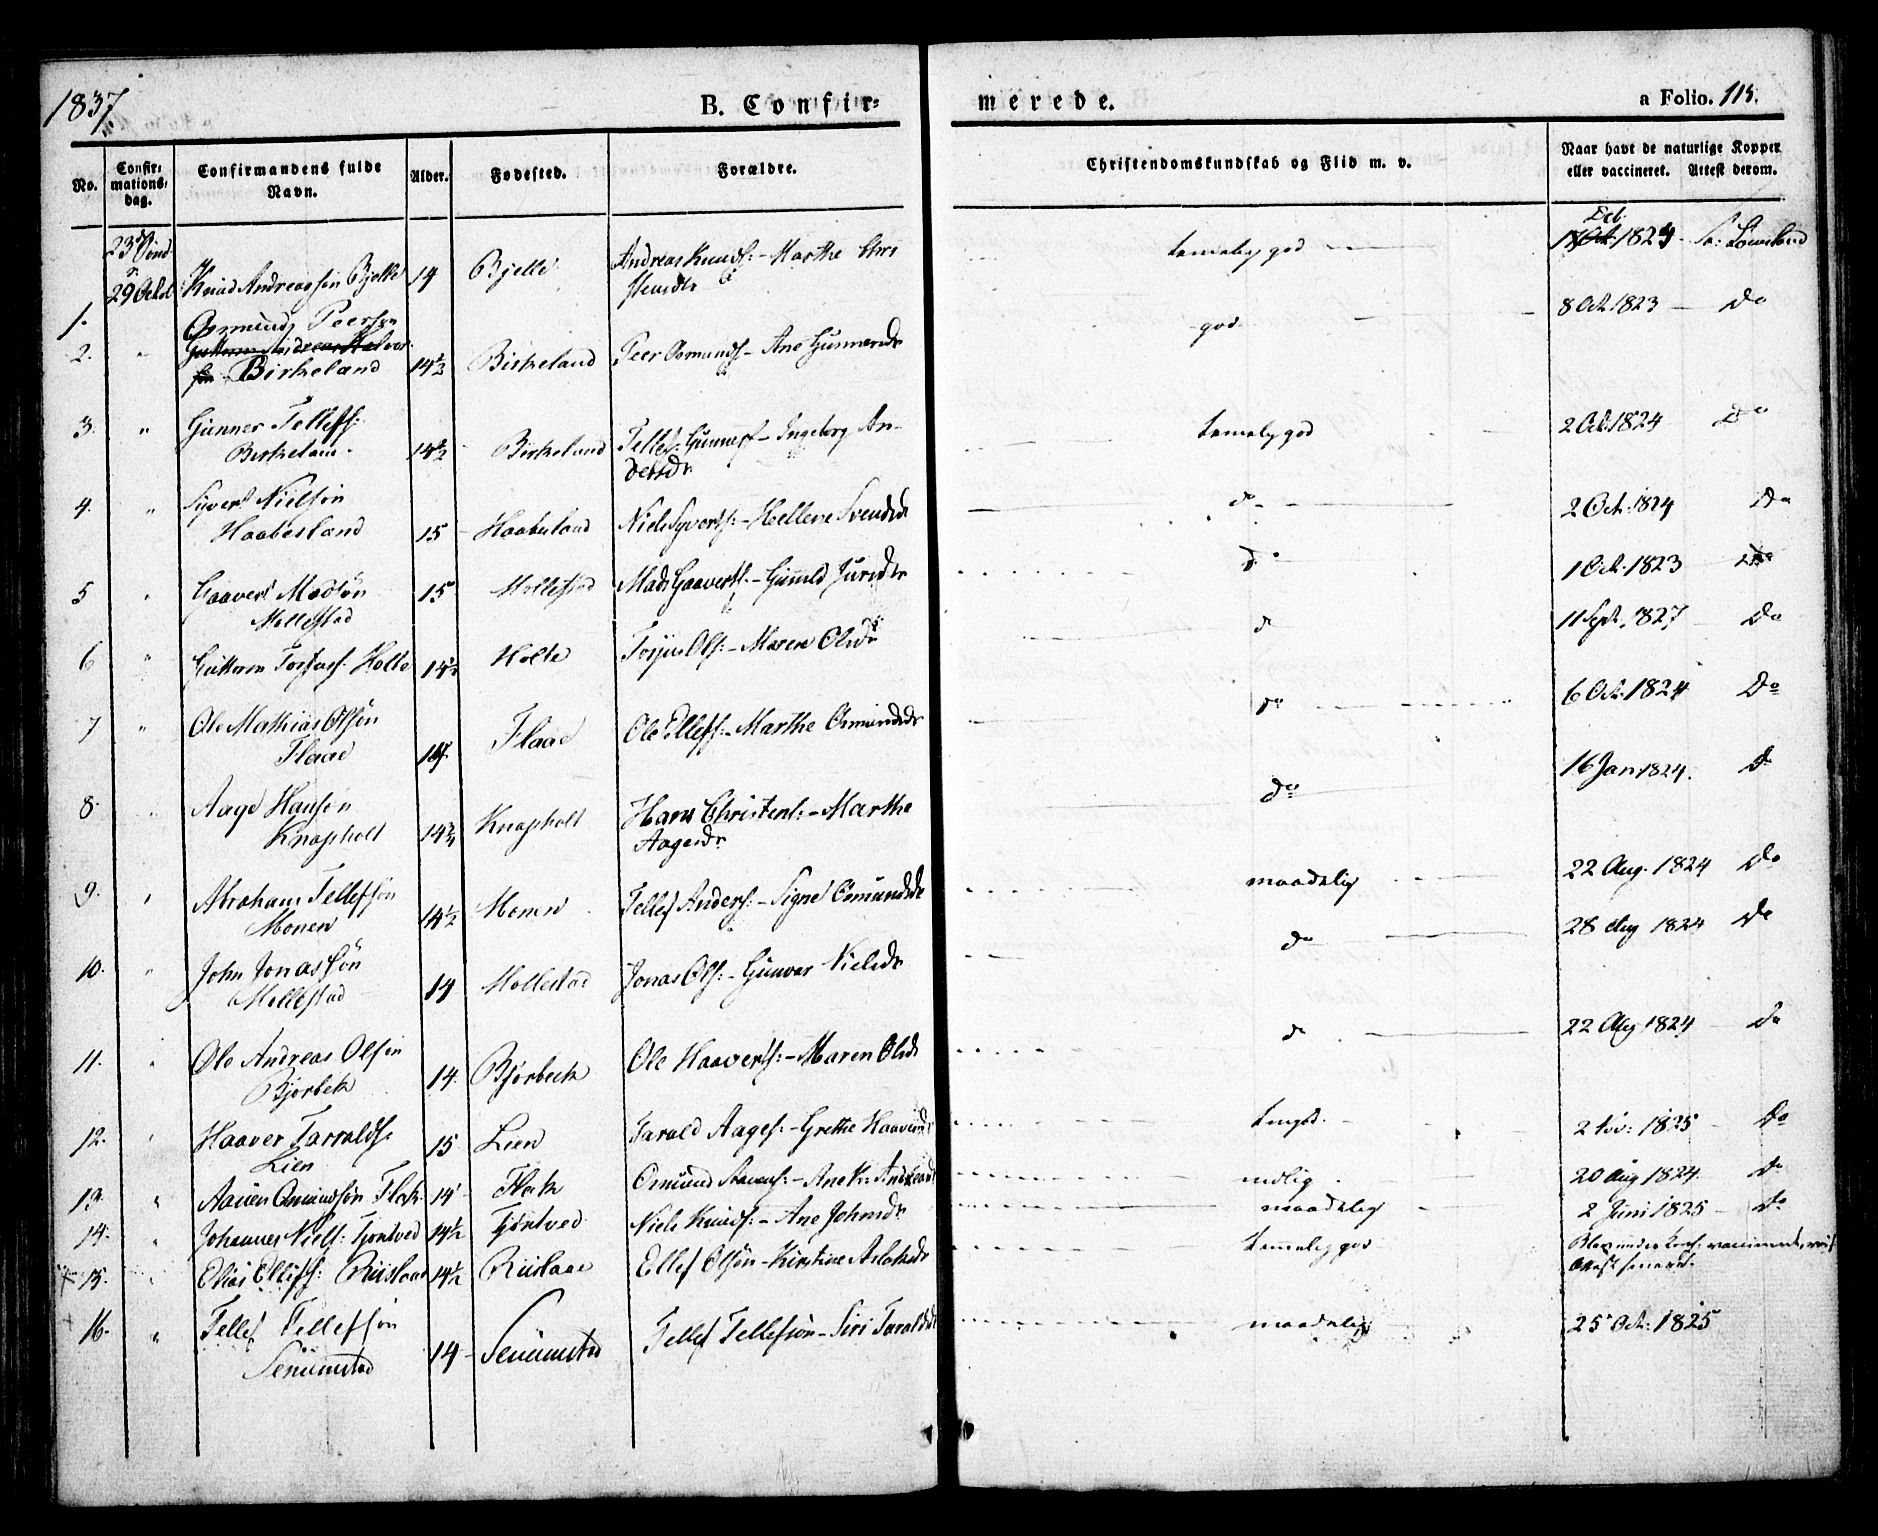 1837.
B. Confir-
merede.
a Folio. 115.
No.
Confir-
mations-
dag.
Confirmandens fulde
Navn.
Alder.
Fødested.
Forældre.
Christendomskundskab og Flid m. v.
Naar havt de naturlige Kopper
eller vaccineret. Attest derom.
23de Sönd
29 Octob
1. Knud Andreassøn Bjelle 14 Bjelle Andreas Knuds: - Marthe Chri
stensdr tamelig god Oct. 1823
2. " Osmund Peersøn
Birkeland 14½ Birkeland Peer Osmunds: - Ane Gunnersdr god 8 Oct. 1823 - Do
3. " Gunner Tellefs:
Birkeland 14½ Birkeland Tellef Gunners: - Ingeborg An-
dersdr tamelig god 2 Oct. 1824 Do
4. " Syvert Nielsøn
Haabesland 15 Haabesland Niels Syverts: - Hellene Svendsdr do 2 Oct. 1824 Do
5 " Gaavert Madsøn
Mollestad 15 Mollestad Mads Gaaverts: - Gunild Jursdr do 1 Oct. 1823 Do
6 " Guttorm Torjus: Holte 14½ Holte Torjus Ols: - Maren Olsdr do 11 Sept. 1827 Do
7 " Ole Mathias Olsøn
Flaae Flaae Ole Ellefs: - Marthe Osmundsdr do 6 Oct. 1824 Do
8. " Aage Hansøn
Knapholt 14¾ Knapholt Hans Christens: - Marthe
Aagesdr do 16 Jan 1824. Do
9. " Abraham Tellefsøn
Monen 14½ Monen Tellef Anders: - Signe Osmundsdr maadelig 22 Aug. 1824 Do
10. " John Jonassøn
Mollestad 14 Mollestad Jonas Ols: - Gunvor Nielsdr do 28 Aug 1824 Do
11. " Ole Andreas Olsøn
Bjorbek 14. Bjorbeck Ole Haaverts: - Maren Olsdr do 22 Aug 1824 Do
12. " Haaver Tarralds:
Lien 15 Lien Tarald Aages: - Grethe Haaversdr 1825 - Do
13. " Aanen Osmundsøn Flak 14 Flak Osmund Aanens: - Ane K: mdlig 20 Aug 1824. Do
14. " Johannes Niels: Tjøntved 14½ Tjøntved Niels Knuds: - Ane Johnsdr maadelig 2 Juni 1825 - Do
15. " Elias Ellefs: Riislaae 14½ Riislaae Ellef Olsøn - Kirstine Aslaksdr tamelig god
Attest senere.
16. " Tellef Tellefsøn
Senumstad 14 - Senumstad Tellef Tellefsøn - Siri Taraldsdr maadelig 25 Oct: 1825